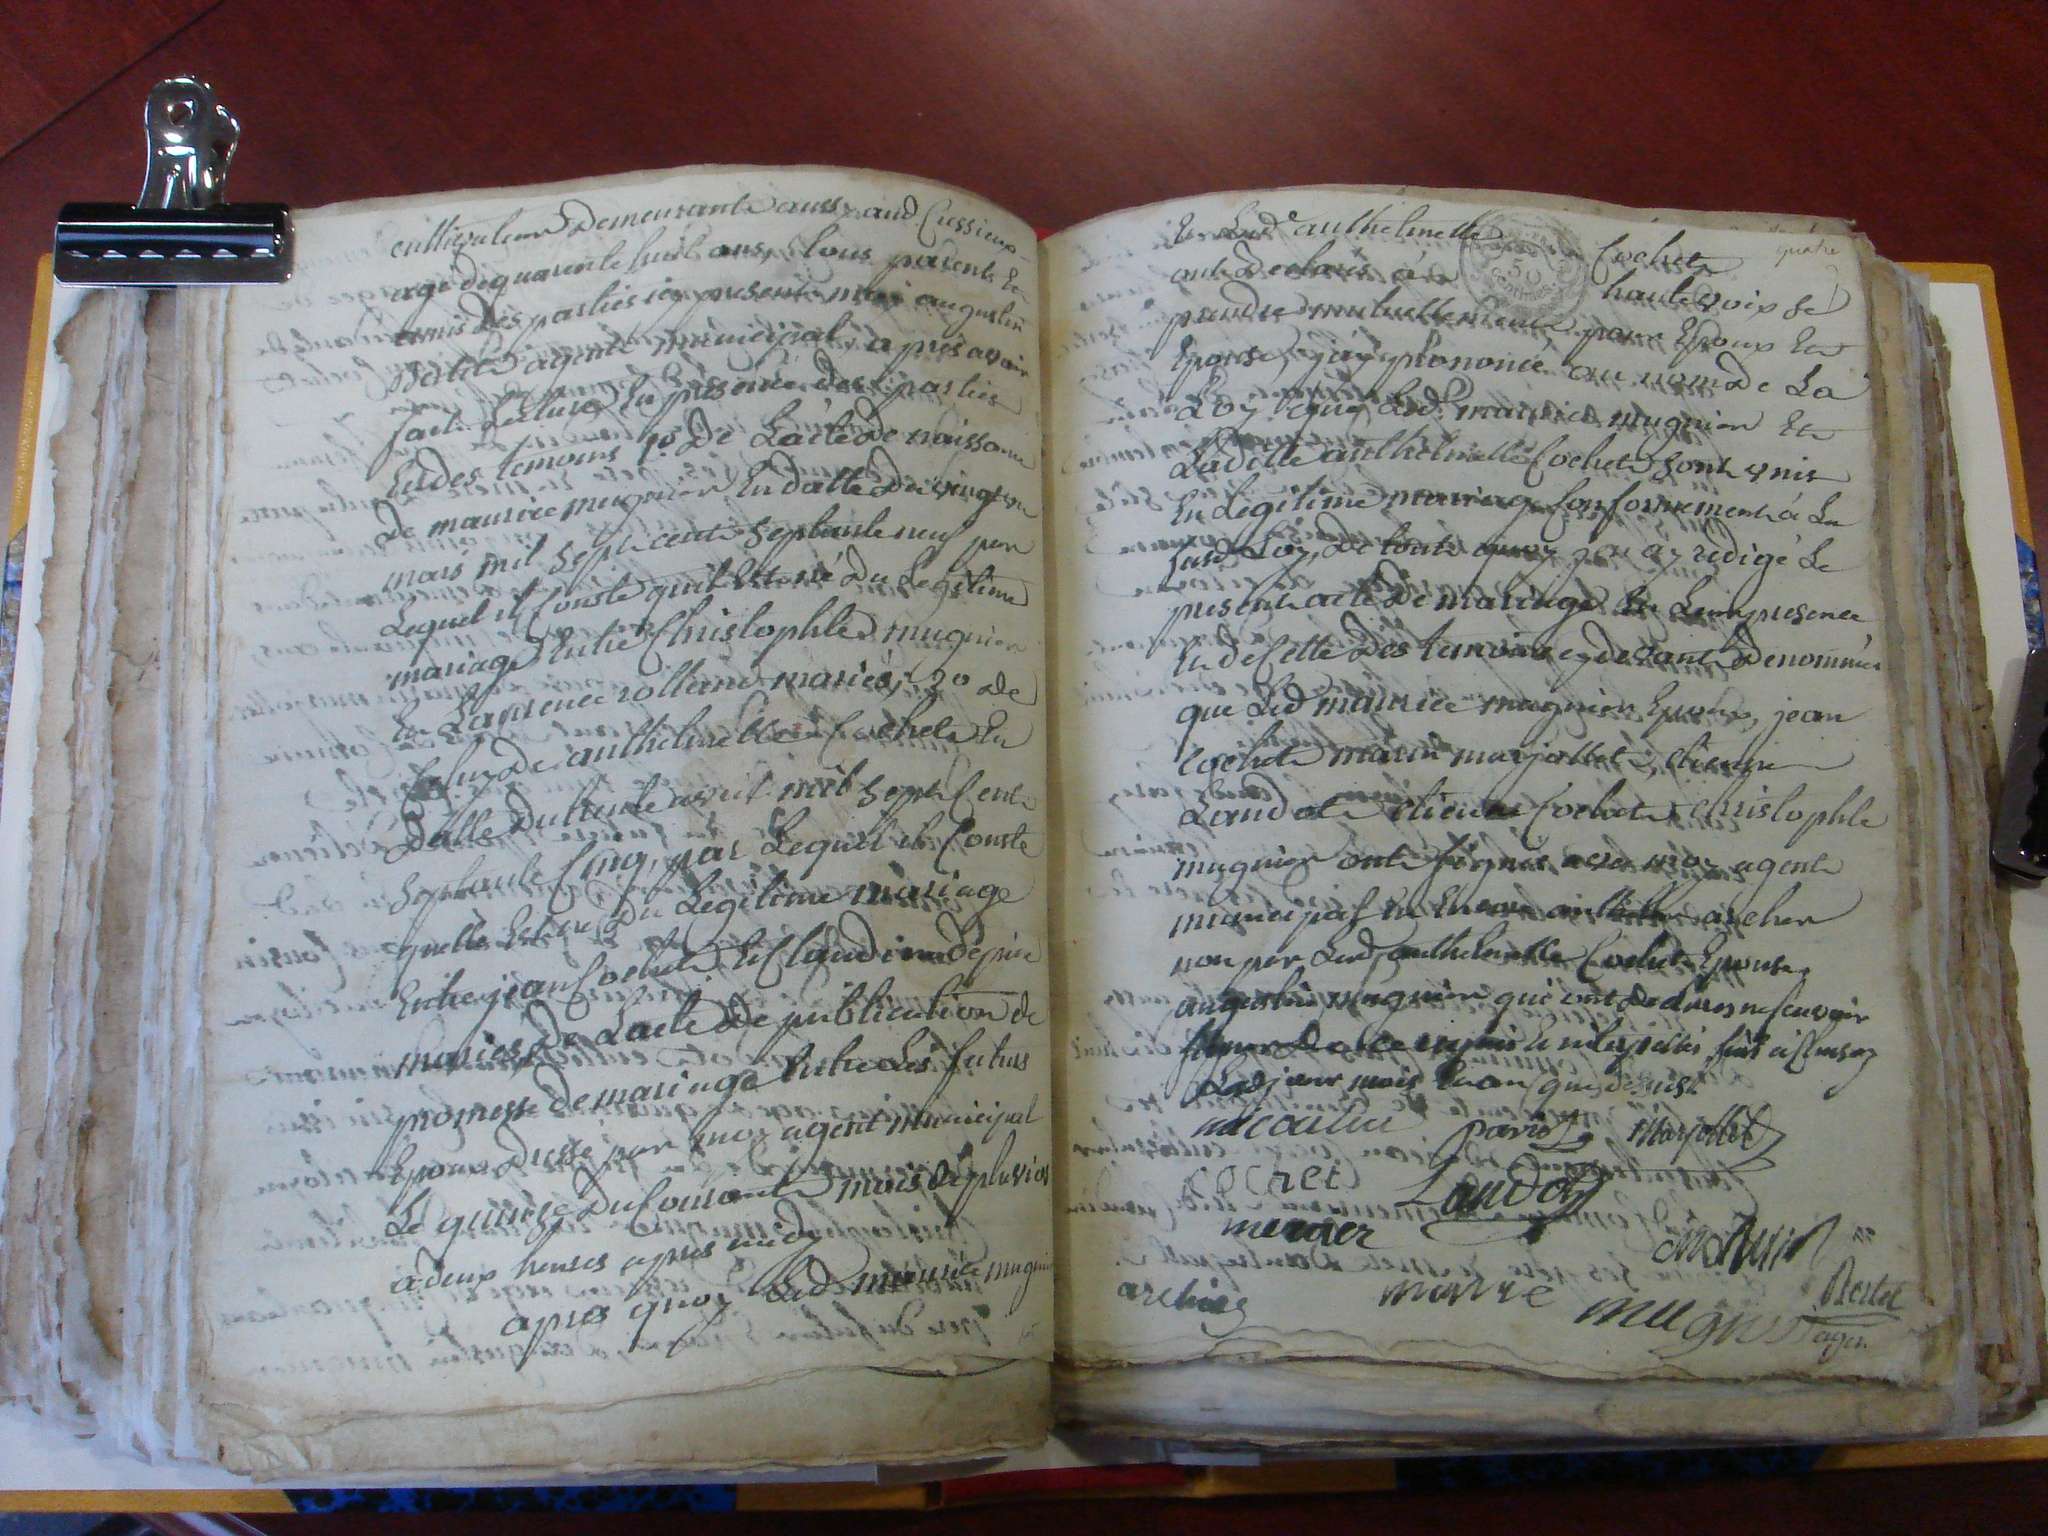 cultivateur Demeurant aussy aud Cussieux
agé de quarante huit ans, tous parents Et
amis des parties icy present moi augustin
Bertet agent municipal, apres avoir
fait Lecture En presence des parties
Et des temoins 1º De Lacte De naissance
De maurice mugnier En datte Du vingt
mars mil Sept cent Septante neuf par
Lequel il Conste quil Est né Du Legitime
mariage Entre Christophle mugnier
Et Laurence rolland mariés, 2º de
Celuy De anthelmette Cochet En
Datte Du trente avril mil Sept Cent
Septante Cinq, par Lequel il Conste
quelle Est née Du Legitime mariage
Entre jean Cochet Et Claudine Depin
mariés, De Lacte De publication de
promesse De mariage Entre Les futurs
Epoux Dressé par moy agent municipal
Le quinze Du Courant mois De pluviose
a deux heures apres midy
apres quoy Led maurice mugnier
Et Lad.e anthelmette Cochet
quatre
50
Centimes
ont Declaré à haute voix se
prendre mutuellement pour Epoux Et
Epouse, j'ay prononcé au nom De La
Loy que Led. maurice mugnier Et
Ladelle anthelmette Cochet sont unis
En Legitime mariage Conformement à La
susd Loy, De tout quoy j'en ay redigé Le
present acte De mariage En Leur presence
Et De Celle Des temoins cy devant Denommés
que Led maurice mugnier Epoux, jean
Cochet marin marjollet, etienne
Landot etienne Cochet christophle
mugnier ont signés avec moy agent
municipal archer
non par Lad anthelmette Cochet Epouse,
augustin mugnier qui ont Declarés ne scavoir
signer De ce requis Et interpellés fait à Cussieux
Lesd jour mois Et an que Dessus
Marjollet
cochet Landoz
mercier
mugnier Bertet
agen.